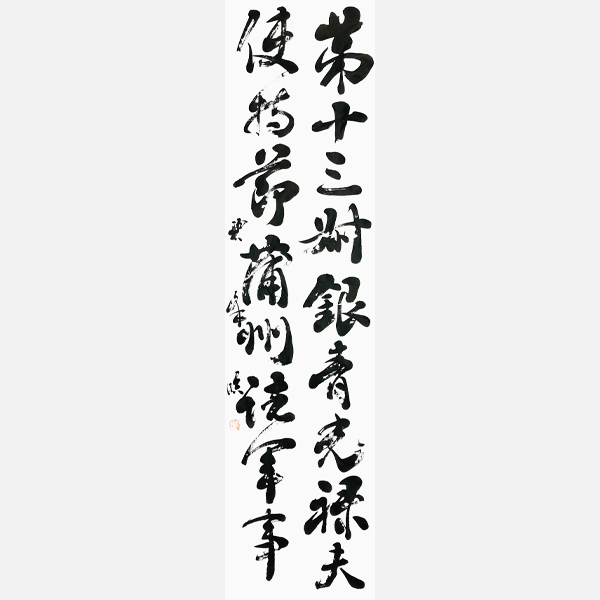 第十三叔銀青光祿夫
使持節蒲州諸軍事